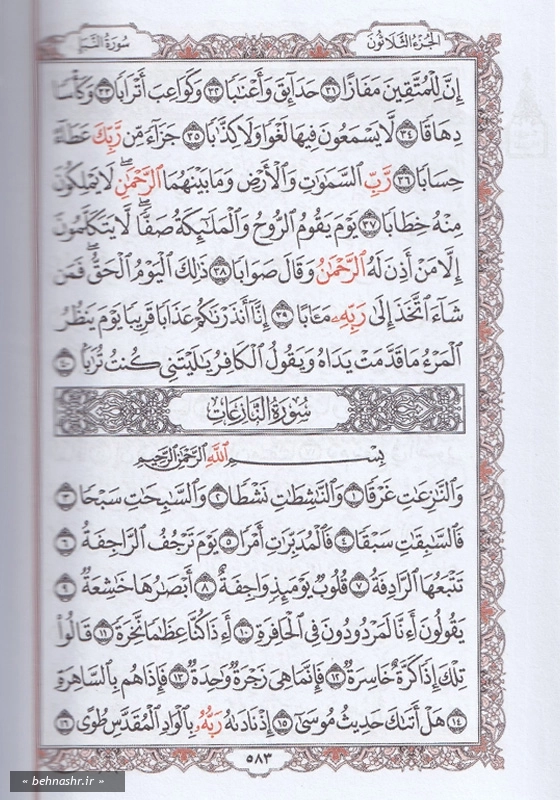 الجزء الثلاثون
سورة النبإ
إِنَّ لِلْمُتَّقِينَ مَفَازًا ﴿٣١﴾ حَدَآئِقَ وَأَعْنَٰبًا ﴿٣٢﴾ وَكَوَاعِبَ أَتْرَابًا ﴿٣٣﴾ وَكَأْسًا
دِهَاقًا ﴿٣٤﴾ لَّا يَسْمَعُونَ فِيهَا لَغْوًا وَلَا كِذَّٰبًا ﴿٣٥﴾ جَزَآءً مِّن رَّبِّكَ عَطَآءً
حِسَابًا ﴿٣٦﴾ رَّبِّ ٱلسَّمَٰوَٰتِ وَٱلْأَرْضِ وَمَا بَيْنَهُمَا ٱلرَّحْمَٰنِ ۖ لَا يَمْلِكُونَ
مِنْهُ خِطَابًا ﴿٣٧﴾ يَوْمَ يَقُومُ ٱلرُّوحُ وَٱلْمَلَٰٓئِكَةُ صَفًّا ۖ لَّا يَتَكَلَّمُونَ
إِلَّا مَنْ أَذِنَ لَهُ ٱلرَّحْمَٰنُ وَقَالَ صَوَابًا ﴿٣٨﴾ ذَٰلِكَ ٱلْيَوْمُ ٱلْحَقُّ ۖ فَمَن
شَآءَ ٱتَّخَذَ إِلَىٰ رَبِّهِۦ مَـَٔابًا ﴿٣٩﴾ إِنَّآ أَنذَرْنَٰكُمْ عَذَابًا قَرِيبًا يَوْمَ يَنظُرُ
ٱلْمَرْءُ مَا قَدَّمَتْ يَدَاهُ وَيَقُولُ ٱلْكَافِرُ يَٰلَيْتَنِى كُنتُ تُرَٰبًۢا ﴿٤٠﴾
سُورَةُ النَّازِعَاتِ
بِسْمِ ٱللَّهِ ٱلرَّحْمَٰنِ ٱلرَّحِيمِ
وَٱلنَّٰزِعَٰتِ غَرْقًا ﴿١﴾ وَٱلنَّٰشِطَٰتِ نَشْطًا ﴿٢﴾ وَٱلسَّٰبِحَٰتِ سَبْحًا ﴿٣﴾
فَٱلسَّٰبِقَٰتِ سَبْقًا ﴿٤﴾ فَٱلْمُدَبِّرَٰتِ أَمْرًا ﴿٥﴾ يَوْمَ تَرْجُفُ ٱلرَّاجِفَةُ ﴿٦﴾
تَتْبَعُهَا ٱلرَّادِفَةُ ﴿٧﴾ قُلُوبٌ يَوْمَئِذٍ وَاجِفَةٌ ﴿٨﴾ أَبْصَٰرُهَا خَٰشِعَةٌ ﴿٩﴾
يَقُولُونَ أَءِنَّا لَمَرْدُودُونَ فِى ٱلْحَافِرَةِ ﴿١٠﴾ أَءِذَا كُنَّا عِظَٰمًا نَّخِرَةً ﴿١١﴾ قَالُوا۟
تِلْكَ إِذًا كَرَّةٌ خَاسِرَةٌ ﴿١٢﴾ فَإِنَّمَا هِىَ زَجْرَةٌ وَٰحِدَةٌ ﴿١٣﴾ فَإِذَا هُم بِٱلسَّاهِرَةِ
﴿١٤﴾ هَلْ أَتَىٰكَ حَدِيثُ مُوسَىٰٓ ﴿١٥﴾ إِذْ نَادَىٰهُ رَبُّهُۥ بِٱلْوَادِ ٱلْمُقَدَّسِ طُوًى ﴿١٦﴾
٥٨٣
« behnashr.ir »